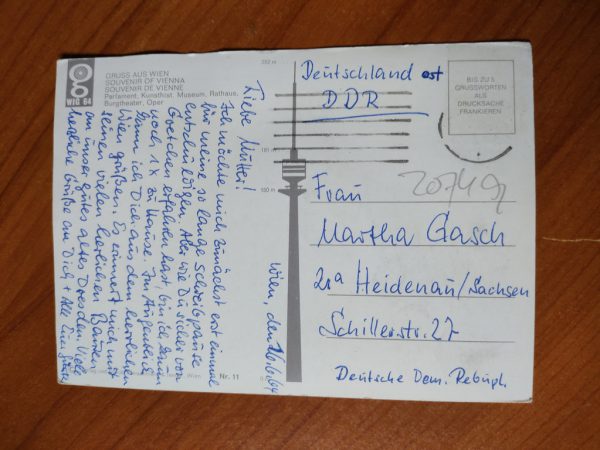 WIG 64
GRUSS AUS WIEN
SOUVENIR OF VIENNA
SOUVENIR DE VIENNE
Parlament, Kunsthist. Museum, Rathaus,
Burgtheater, Oper
Wien, den 16.6.64
Liebe Mutter!
Ich möchte mich zunächst erst einmal
für meine so lange Schreibpause
entschuldigen. Aber wie Du sicher von
Gretchen erfahren hast, bin ich kaum
noch 1x zu Hause. Im Augenblick
kann ich Dich aus dem herrlichen
Wien grüßen. Es erinnert mich mit
seinen vielen herrlichen Bauten
an unser gutes altes Dresden. Viele
herzliche Grüße an Dich + alle
Nr. 11
252 m
181 m
160 m
Deutschland ost
DDR
BIS ZU 5
GRUSSWORTEN
ALS
DRUCKSACHE
FRANKIEREN
Frau
Martha Gasch
Heidenau/Sachsen
Schillerstr. 27
Deutsche Dem. Republ.